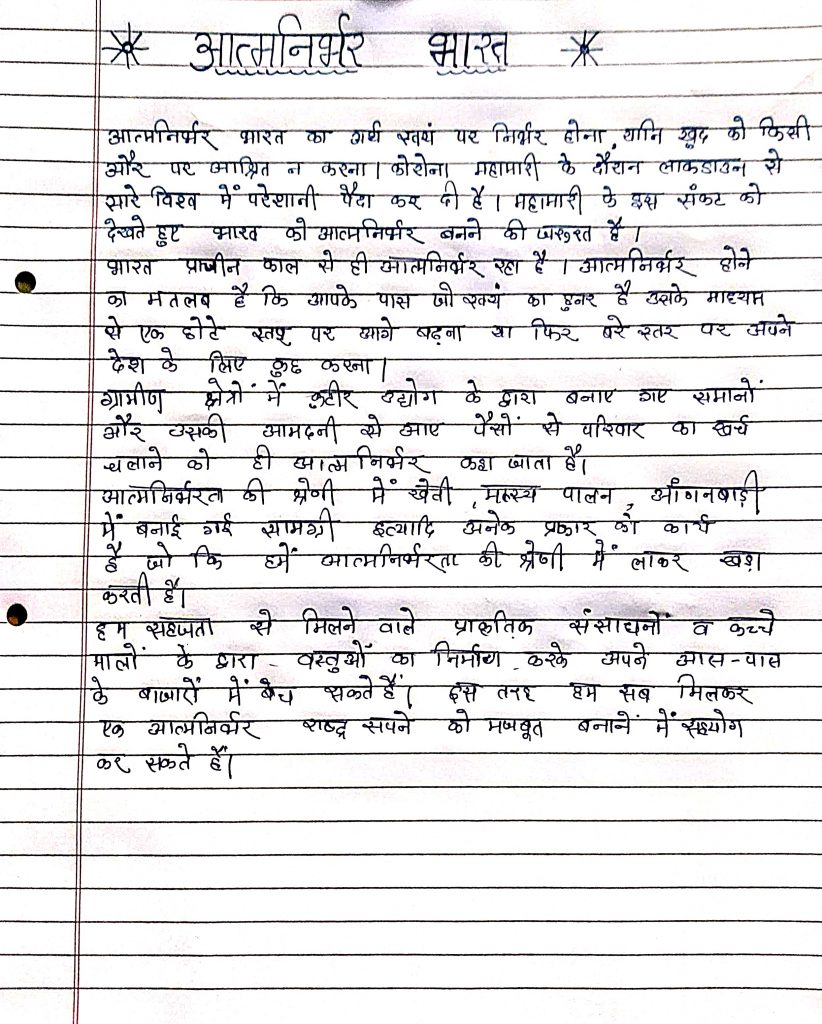 आत्मनिर्भर भारत
आत्मनिर्भर भारत का अर्थ स्वयं पर निर्भर होना, यानि खुद को किसी
और पर आश्रित न करना। कोरोना महामारी के दौरान लाकडाउन से
सारे विश्व में परेशानी पैदा कर दी है। महामारी के इस संकट को
देखते हुए भारत को आत्मनिर्भर बनने की जरूरत है।
भारत प्राचीन काल से ही आत्मनिर्भर रहा है। आत्मनिर्भर होने
का मतलब है कि आपके पास जो स्वयं का हुनर है उसके माध्यम
से एक छोटे स्तर पर आगे बढ़ना या फिर बरे स्तर पर अपने
देश के लिए कुछ करना।
ग्रामीण क्षेत्रों में कुटीर उद्योग के द्वारा बनाए गए समानों
और उसकी आमदनी से आए पैसों से परिवार का खर्च
चलाने को ही आत्मनिर्भर कहा जाता है।
आत्मनिर्भरता की श्रेणी में खेती, मत्स्य पालन, आँगनबाड़ी
में बनाई गई सामग्री इत्यादि अनेक प्रकार को कार्य
है जो कि हमें आत्मनिर्भरता की श्रेणी में लाकर खड़ा
करती है।
हम सहजता से मिलने वाले प्राकृतिक संसाधनों व कच्चे
मालों के द्वारा वस्तुओं का निर्माण करके अपने आस-पास
के बाजारों में बेच सकते हैं। इस तरह हम सब मिलकर
एक आत्मनिर्भर राष्ट्र सपने को मजबूत बनाने में सहयोग
कर सकते हैं।